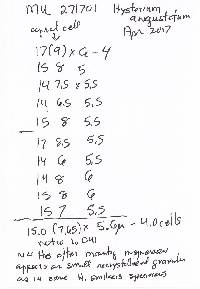 MU 271701 Hysterium
angustatum
Apr 2017
cell
17(9) x 6 - 4
15 8 5
14 7.5 x 5.5
14 6.5 5.5
15 8 5.5
17 8.5 5.5
14 6 5.5
14 8 6
15 8 6
15 7 5.5
15.0 (7.65) x 5.6µ - 4.0 cells
ratio
after months
appears as small granules
as in some H. specimens